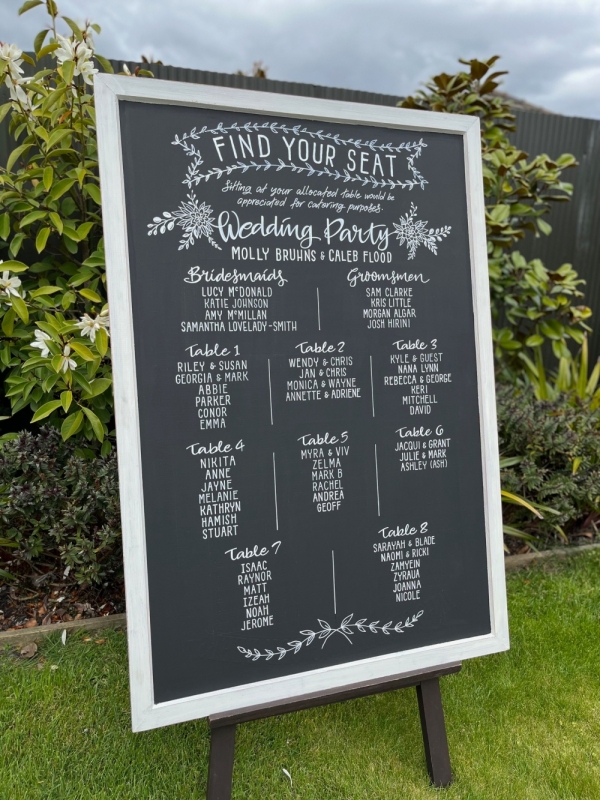 FIND YOUR SEAT
Sitting at your allocated table would be
appreciated for catering purposes.
Wedding Party
MOLLY BRUHNS & CALEB FLOOD
Bridesmaids
LUCY McDONALD
KATIE JOHNSON
AMY McMILLAN
SAMANTHA LOVELADY-SMITH
Groomsmen
SAM CLARKE
KRIS LITTLE
MORGAN ALGAR
JOSH HIRINI
Table 1
RILEY & SUSAN
GEORGIA & MARK
ABBIE
PARKER
CONOR
EMMA
Table 2
WENDY & CHRIS
JAN & CHRIS
MONICA & WAYNE
ANNETTE & ADRIENE
Table 3
KYLE & GUEST
NANA LYNN
REBECCA & GEORGE
KERI
MITCHELL
DAVID
Table 4
NIKITA
ANNE
JAYNE
MELANIE
KATHRYN
HAMISH
STUART
Table 5
MYRA & VIV
ZELMA
MARK B
RACHEL
ANDREA
GEOFF
Table 6
JACQUI & GRANT
JULIE & MARK
ASHLEY (ASH)
Table 7
ISAAC
RAYNOR
MATT
IZEAH
NOAH
JEROME
Table 8
SARAYAH & BLADE
NAOMI & RICKI
ZAMYEIN
ZYRAUA
JOANNA
NICOLE